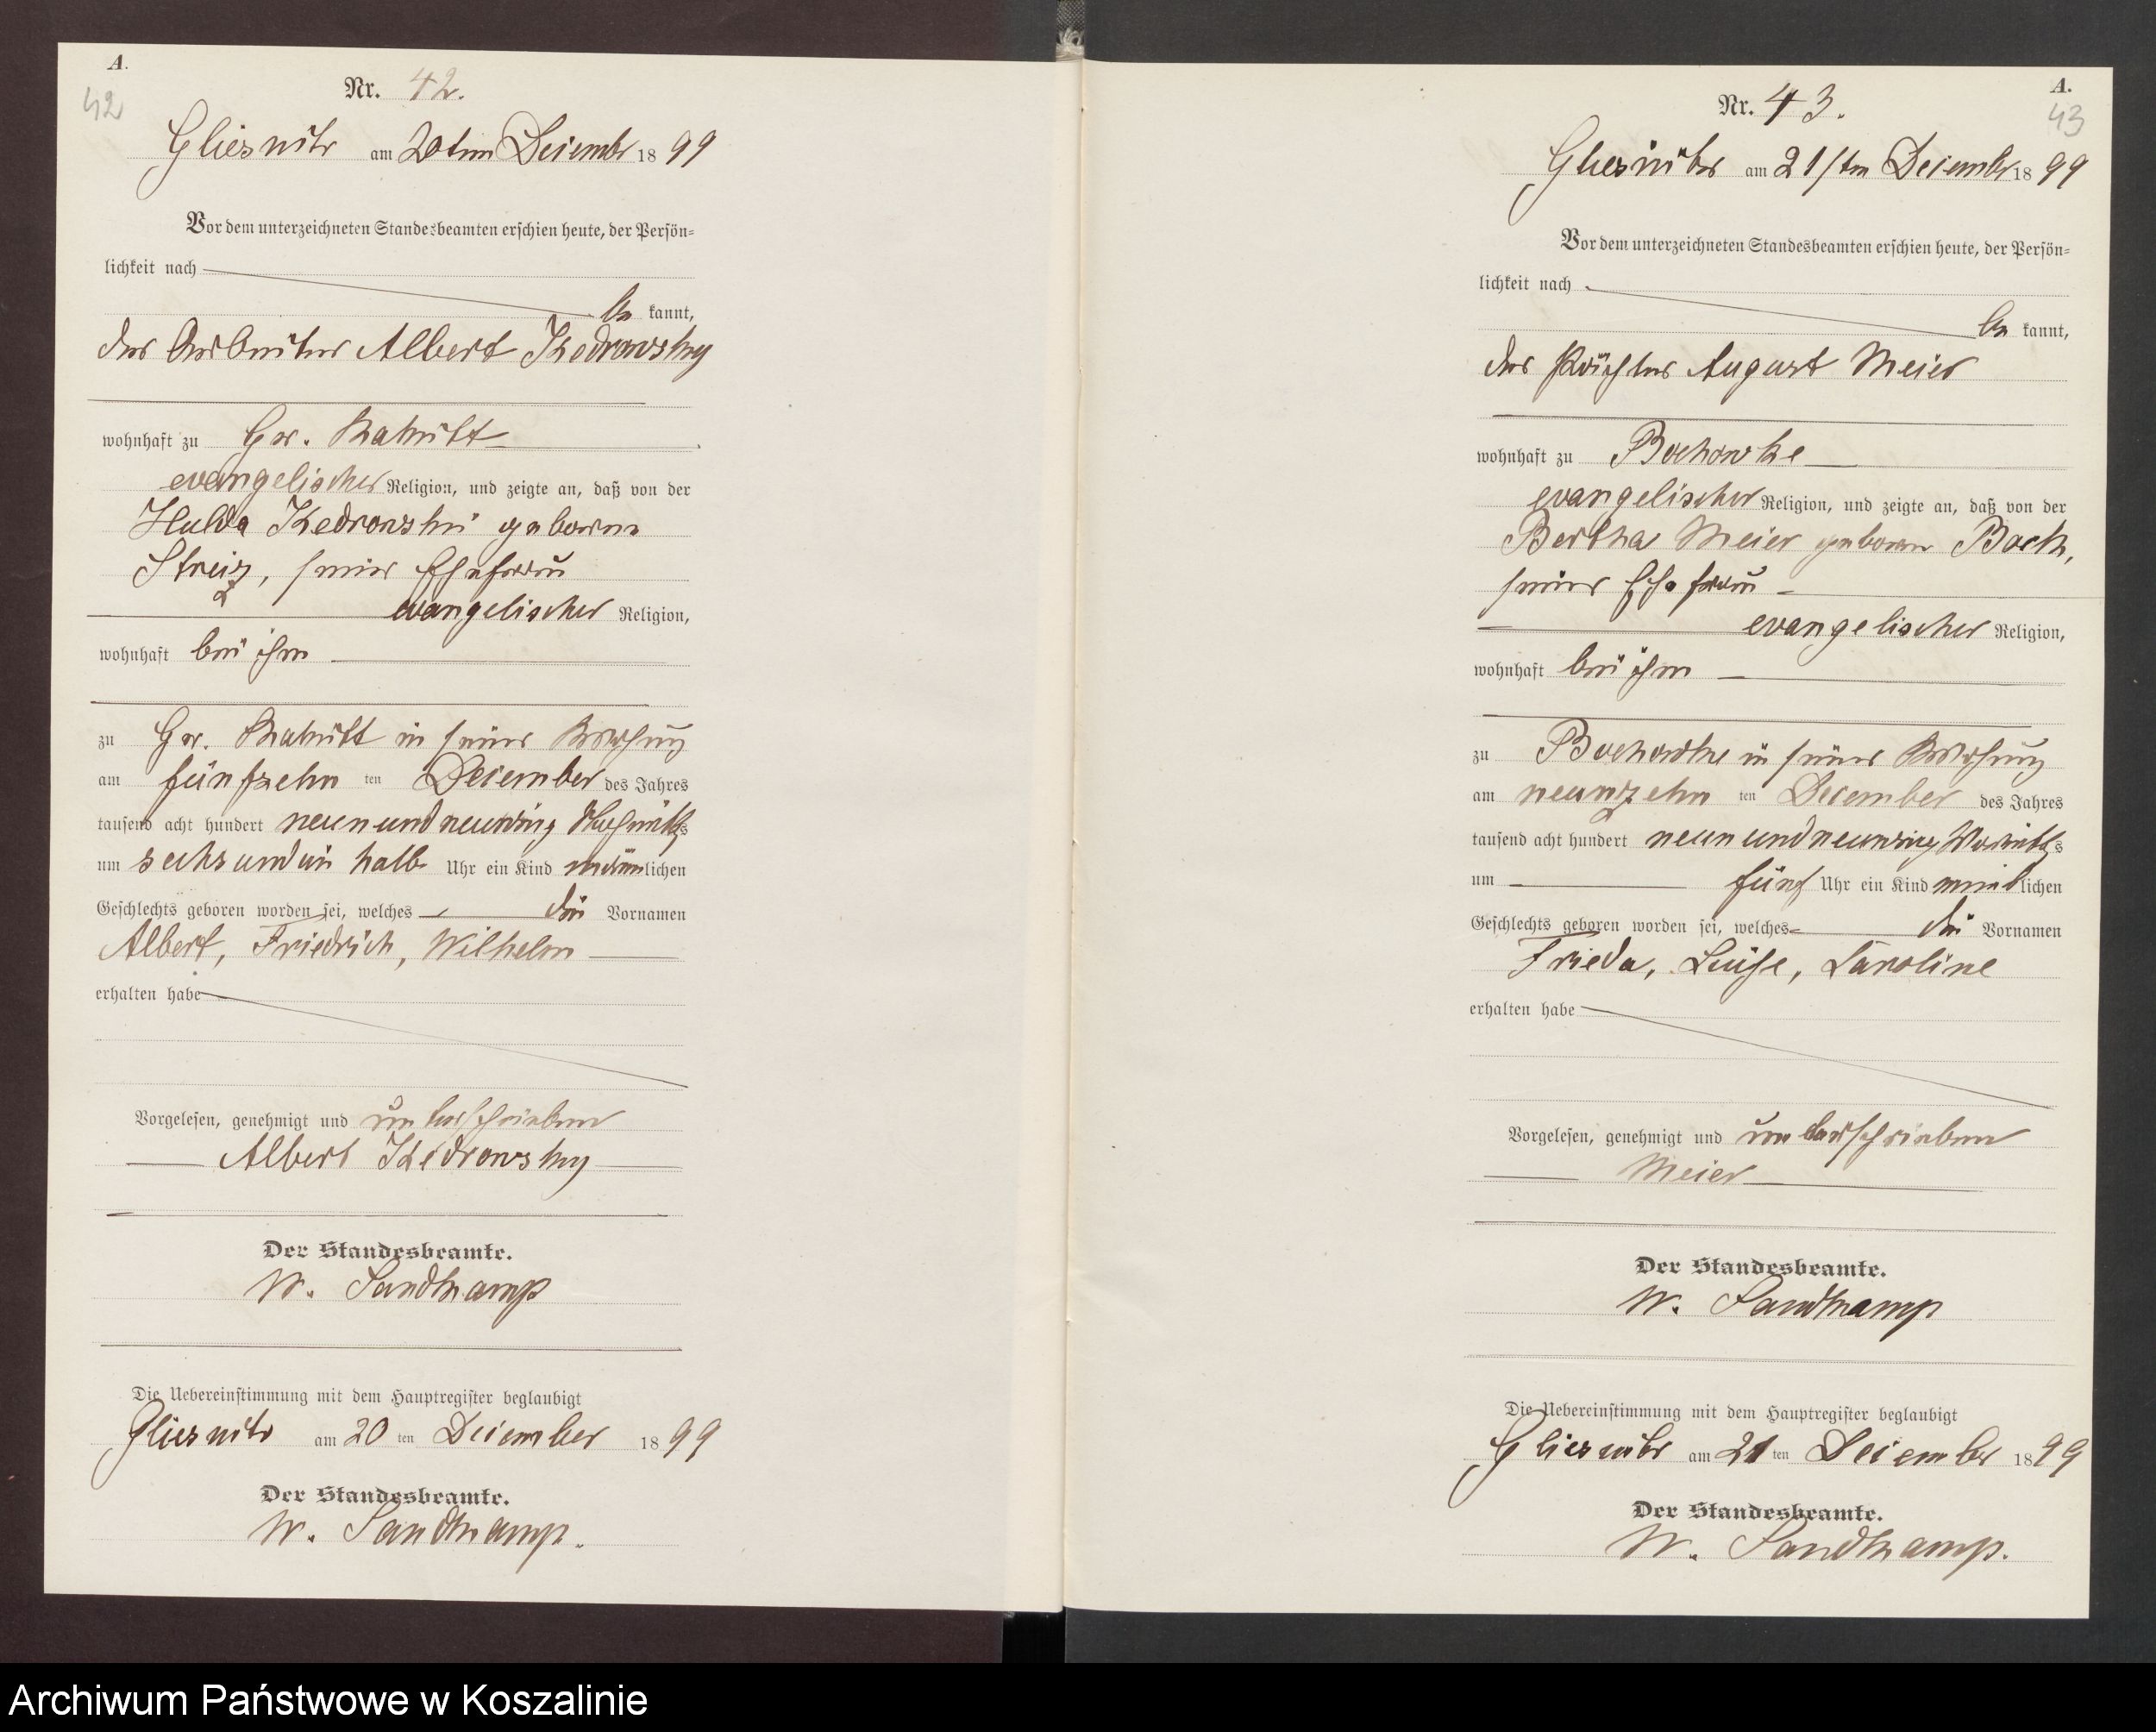 A.
42
Nr. 42.
Gliesnitz am 20ten Dezembr 1899
Vor dem unterzeichneten Standesbeamten erschien heute, der Persön-
lichkeit nach
be kannt,
der Arbeiter Albert Kedrowsky
wohnhaft zu Gr. Rakitt
evangelischer Religion, und zeigte an, daß von der
Hulda Kedrowski geborne
seiner Ehefrau
evangelischer Religion,
wohnhaft bei ihm
zu Gr. Rakitt in seiner Wohnung
am fünfzehn ten Dezember des Jahres
tausend acht hundert neunundneunzig Nachmittags
um sechs und ein halb Uhr ein Kind männlichen
Geschlechts geboren worden sei, welches die Vornamen
Albert, Friedrich, Wilhelm
erhalten habe
Vorgelesen, genehmigt und unterschrieben
Albert Kedrowsky
Der Standesbeamte.
W. Sandkamp
Die Uebereinstimmung mit dem Hauptregister beglaubigt
Gliesnitz am 20 ten Dezember 1899
Der Standesbeamte.
W. Sandkamp.
A.
43
Nr. 43.
Gliesnitz am 21sten Dezembr 1899
Vor dem unterzeichneten Standesbeamten erschien heute, der Persön-
lichkeit nach
be kannt,
der Pächter August Meier
wohnhaft zu Bochowke
evangelischer Religion, und zeigte an, daß von der
Bertha Meier geboren Bock,
seiner Ehefrau
evangelischer Religion,
wohnhaft bei ihm
zu Bochowke in seiner Wohnung
am neunzehn ten Dezember des Jahres
tausend acht hundert neunundneunzig Vormittags
um fünf Uhr ein Kind weiblichen
Geschlechts geboren worden sei, welches die Vornamen
Frieda, Luise, Caroline
erhalten habe
Vorgelesen, genehmigt und unterschrieben
Meier
Der Standesbeamte.
W. Sandkamp
Die Uebereinstimmung mit dem Hauptregister beglaubigt
Gliesnitz am 21 ten Dezember 1899
Der Standesbeamte.
W. Sandkamp.
Archiwum Państwowe w Koszalinie